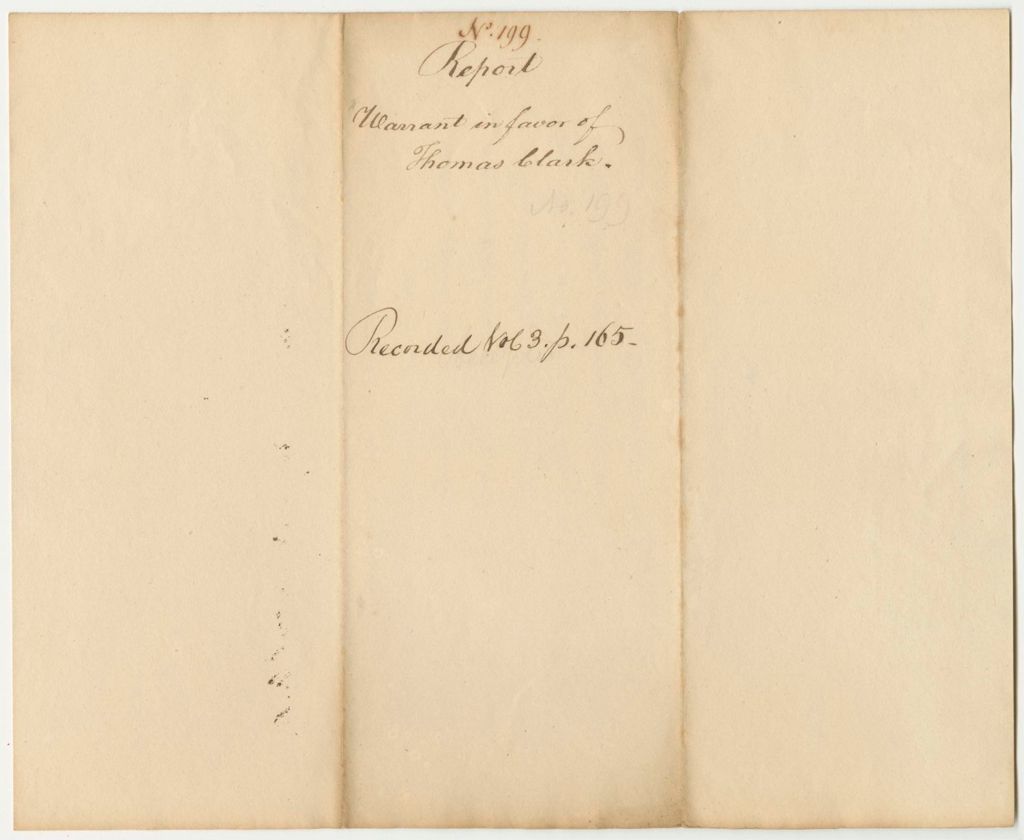 No. 199.
Report
Warrant in favor of
Thomas Clark.
No. 199
Recorded Vol 3. p. 165-